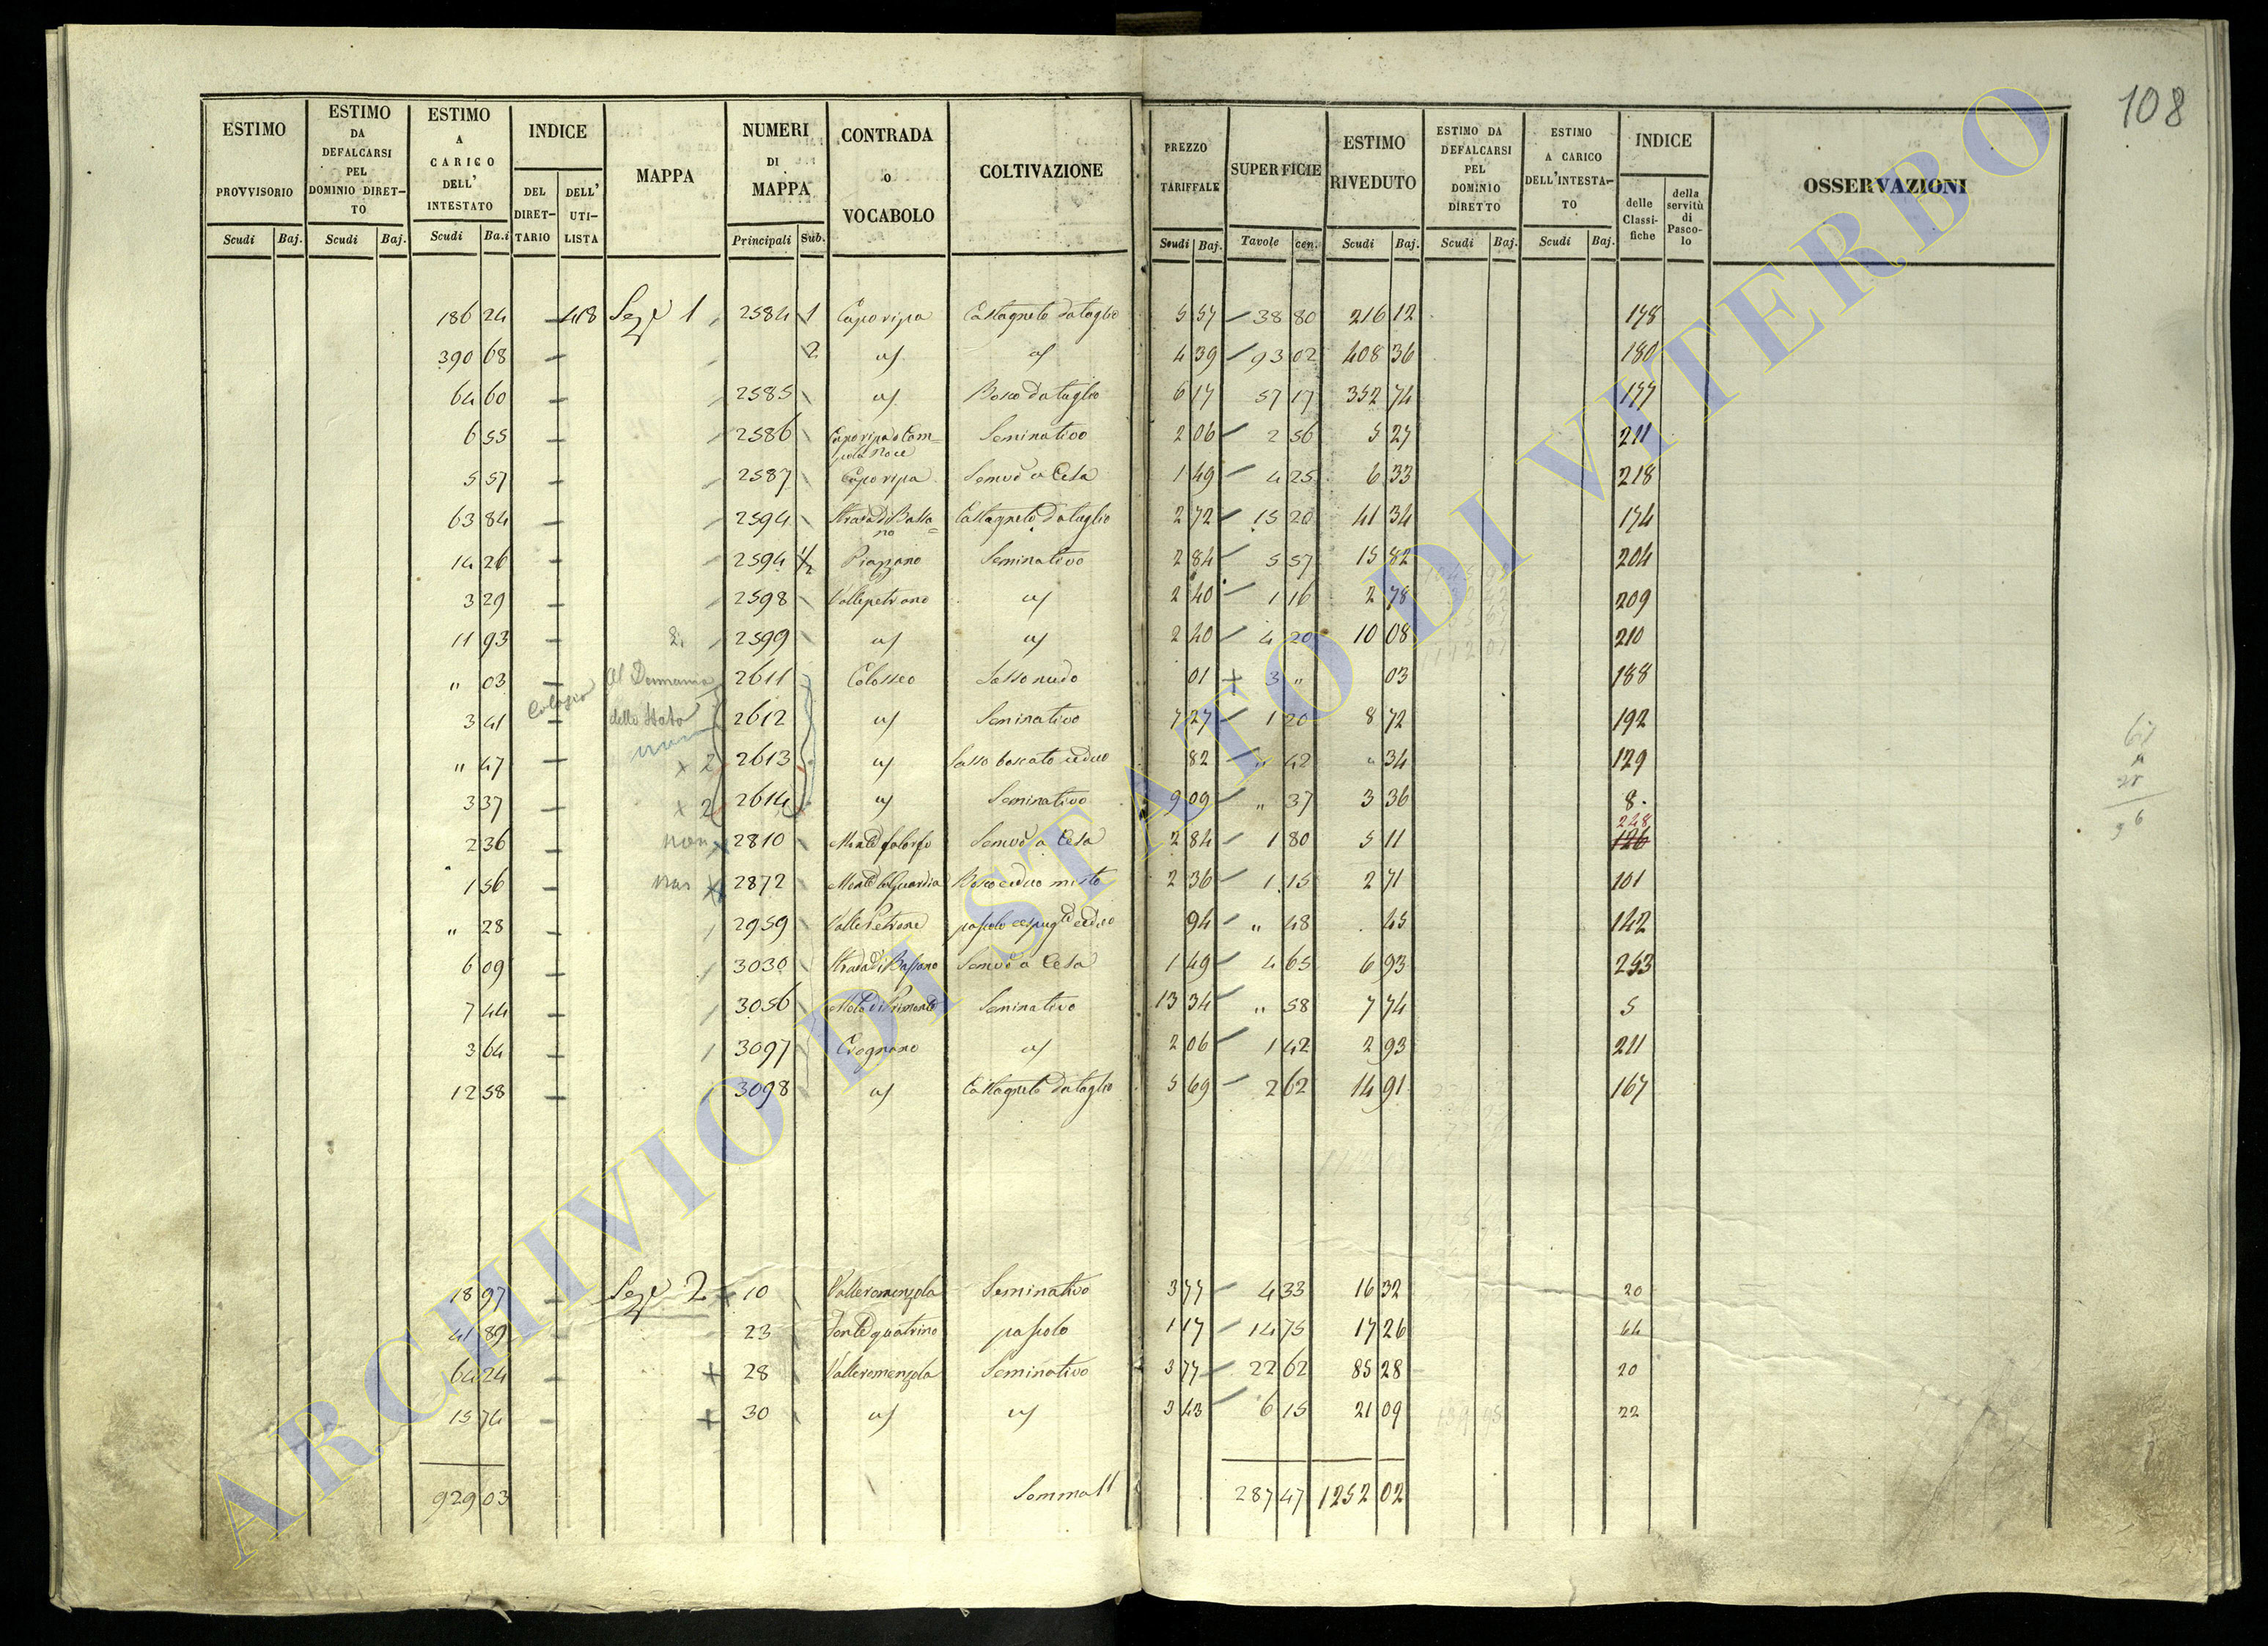 108
ESTIMO PROVVISORIO Scudi Baj.
ESTIMO DA DEFALCARSI PEL DOMINIO DIRETTO Scudi Baj.
ESTIMO A CARICO DELL' INTESTATO Scudi Ba.i
INDICE DEL DIRETTARIO DELL' UTILISTA
MAPPA
NUMERI DI MAPPA Principali Sub.
CONTRADA o VOCABOLO
COLTIVAZIONE
PREZZO TARIFFALE Scudi Baj.
SUPERFICIE Tavole cen.
ESTIMO RIVEDUTO Scudi Baj.
ESTIMO DA DEFALCARSI PEL DOMINIO DIRETTO Scudi Baj.
ESTIMO A CARICO DELL'INTESTATO Scudi Baj.
INDICE delle Classifiche della servitù di Pascolo
OSSERVAZIONI
186 24 — 418 Sez.e 1 2584 1 Caporipa Castagneto da taglio 5 57 38 80 216 12 178
390 68 — 2 id id 4 39 93 02 408 36 180
64 60 — 2585 id Bosco da taglio 6 17 57 17 352 74 177
6 55 — 2586 Caporipa o Campo la Noce Seminativo 2 06 2 56 5 27 211
5 57 — 2587 Caporipa Semvo a Cesa 1 49 4 25 6 33 218
63 84 — 2594 Strada di Bassano Castagneto da taglio 2 72 15 20 41 34 174
14 26 — 2594 1/2 Piazzano Seminativo 2 84 5 57 15 82 204
3 29 — 2598 Vallepetrone id 2 40 1 16 2 78 209
11 93 — 2. 2599 id id 2 40 4 20 10 08 210
" 03 — Al Demanio 2611 Colosseo Sasso nudo 01 + 3 " 03 188
3 41 — dello Stato 2612 id Seminativo 7 27 1 20 8 72 192
" 47 — x 2 2613 id Sasso boscato ceduo 82 " 42 " 34 129
3 37 — x 2 2614 id Seminativo 9 09 " 37 3 36 8
2 36 — non 2810 Monte falorfo Semvo a Cesa 2 84 1 80 5 11 248 126
1 56 — 2872 Monte la Guardia Bosco ceduo misto 2 36 1 15 2 71 101
" 28 — 2959 Valle Petrone pascolo cespug.to ceduo 94 " 48 . 45 142
6 09 — 3030 Strada di Bassano Semvo a Cesa 1 49 4 65 6 93 253
7 44 — 3056 Seminativo 13 34 " 58 7 74 5
3 64 — 3097 Crognano id 2 06 1 42 2 93 211
12 58 — 3098 id Castagneto da taglio 5 69 2 62 14 91 167
18 97 — Sez.e 2 + 10 Valleromenzola Seminativo 3 77 4 33 16 32 20
41 89 — 23 Fonte quatrino pascolo 1 17 14 75 17 26 44
64 24 — + 28 Valleromenzola Seminativo 3 77 22 62 85 28 20
15 74 — + 30 id id 3 43 6 15 21 09 22
929 03 Somma 287 47 1252 02
ARCHIVIO DI STATO DI VITERBO